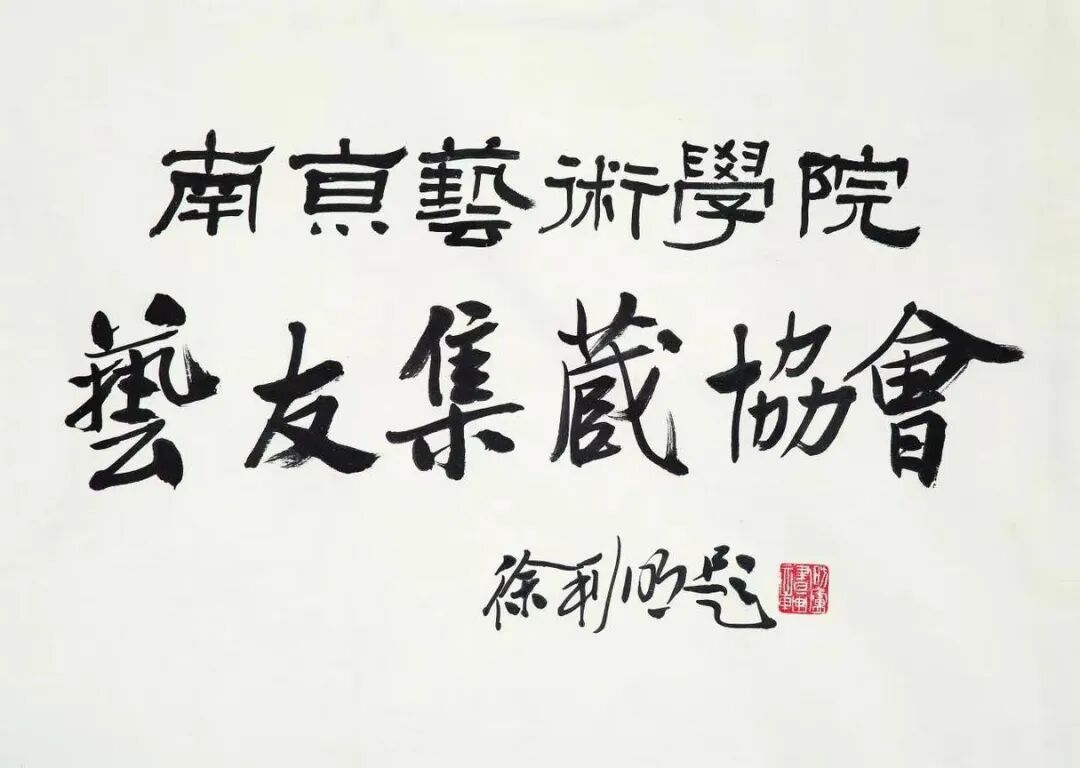 南京藝術學院
藝友集蔵協會
徐利明題